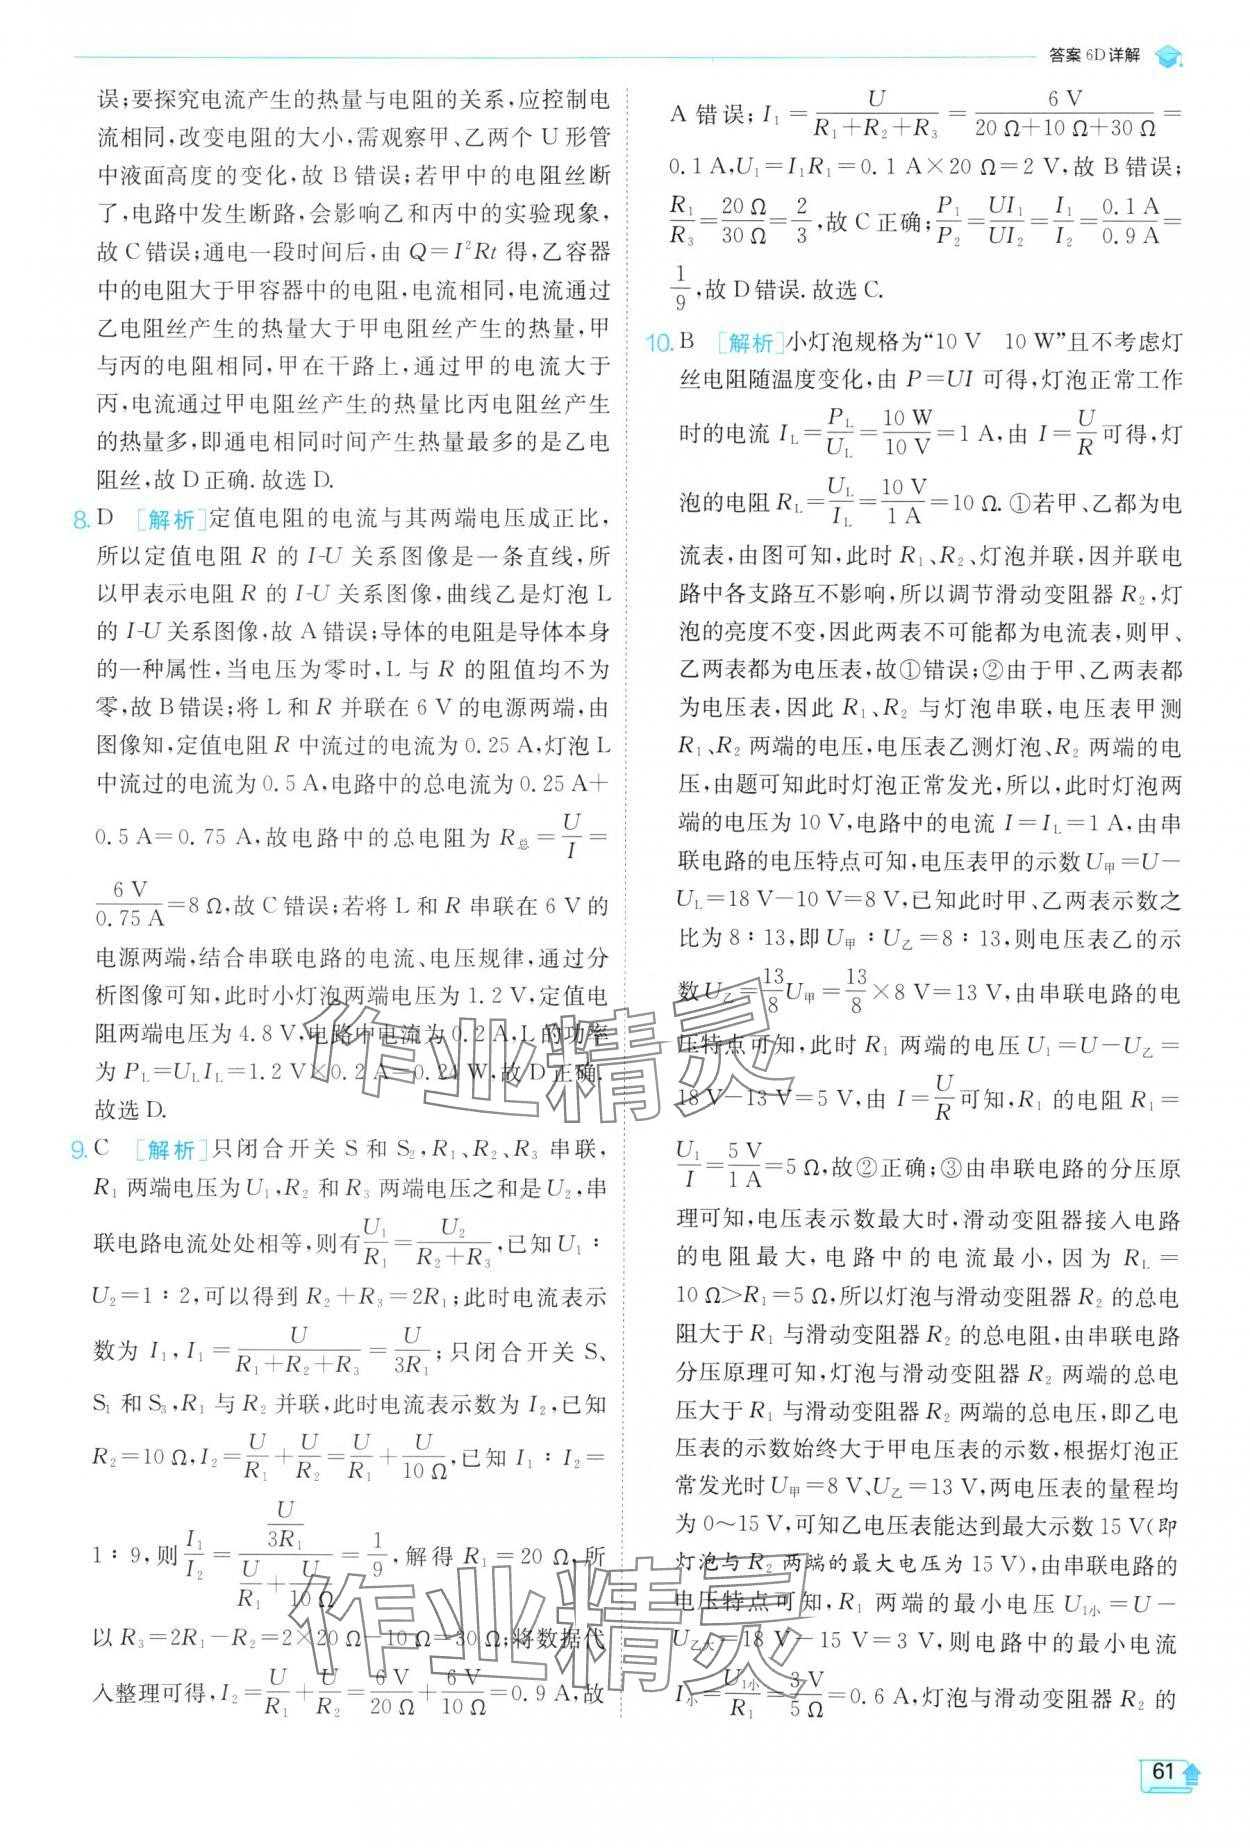 答案 6D详解
误;要探究电流产生的热量与电阻的关系,应控制电
流相同,改变电阻的大小,需观察甲、乙两个 U 形管
中液面高度的变化,故 B错误;若甲中的电阻丝断
了,电路中发生断路,会影响乙和丙中的实验现象,
故 C错误;通电一段时间后,由 Q=I²Rt 得,乙容器
中的电阻大于甲容器中的电阻,电流相同,电流通过
乙电阻丝产生的热量大于甲电阻丝产生的热量,甲
与丙的电阻相同,甲在干路上,通过甲的电流大于
丙,电流通过甲电阻丝产生的热量比丙电阻丝产生
的热量多,即通电相同时间产生热量最多的是乙电
阻丝,故 D 正确. 故选 D.
8. D [解析]定值电阻的电流与其两端电压成正比,
所以定值电阻 R 的 I-U 关系图像是一条直线,所
以甲表示电阻 R 的 I-U 关系图像,曲线乙是灯泡 L
的 I-U 关系图像,故 A 错误;导体的电阻是导体本身
的一种属性,当电压为零时,L 与 R 的阻值均不为
零,故 B错误;将 L 和 R 并联在 6 V 的电源两端,由
图像知,定值电阻 R 中流过的电流为 0.25 A,灯泡 L
中流过的电流为 0.5 A,电路中的总电流为 0.25 A+
0.5 A=0.75 A,故电路中的总电阻为 R总=U/I=
6 V/0.75 A=8 Ω,故 C错误;若将 L 和 R 串联在 6 V 的
电源两端,结合串联电路的电流、电压规律,通过分
析图像可知,此时小灯泡两端电压为 1.2 V,定值电
阻两端电压为 4.8 V,电路中电流为 0.2 A,L 的功率
为 PL=ULIL=1.2 V×0.2 A=0.24 W,故 D 正确.
故选 D.
9. C [解析]只闭合开关 S 和 S₂,R₁、R₂、R₃ 串联,
R₁ 两端电压为 U₁,R₂ 和 R₃ 两端电压之和是 U₂,串
联电路电流处处相等,则有U₁/R₁=U₂/(R₂+R₃),已知 U₁∶
U₂=1∶2,可以得到 R₂+R₃=2R₁;此时电流表示
数为 I₁,I₁=U/(R₁+R₂+R₃)=U/3R₁;只闭合开关 S、
S₁ 和 S₃,R₁ 与 R₂ 并联,此时电流表示数为 I₂,已知
R₂=10 Ω,I₂=U/R₁+U/R₂=U/R₁+U/10 Ω,已知 I₁∶I₂=
1∶9,则I₁/I₂=(U/3R₁)/(U/R₁+U/10 Ω)=1/9,解得 R₁=20 Ω,所
以 R₃=2R₁-R₂=2×20 Ω-10 Ω=30 Ω;将数据代
入整理可得,I₂=U/R₁+U/R₂=6 V/20 Ω+6 V/10 Ω=0.9 A,故
A 错误;I₁=U/(R₁+R₂+R₃)=6 V/(20 Ω+10 Ω+30 Ω)=
0.1 A,U₁=I₁R₁=0.1 A×20 Ω=2 V,故 B 错误;
R₁/R₃=20 Ω/30 Ω=2/3,故 C 正确;P₁/P₂=UI₁/UI₂=I₁/I₂=0.1 A/0.9 A=
1/9,故 D错误. 故选 C.
10. B [解析]小灯泡规格为“10 V 10 W”且不考虑灯
丝电阻随温度变化,由 P=UI 可得,灯泡正常工作
时的电流 IL=PL/UL=10 W/10 V=1 A,由 I=U/R可得,灯
泡的电阻 RL=UL/IL=10 V/1 A=10 Ω. ①若甲、乙都为电
流表,由图可知,此时 R₁、R₂、灯泡并联,因并联电
路中各支路互不影响,所以调节滑动变阻器 R₂,灯
泡的亮度不变,因此两表不可能都为电流表,则甲、
乙两表都为电压表,故①错误;②由于甲、乙两表都
为电压表,因此 R₁、R₂ 与灯泡串联,电压表甲测
R₁、R₂ 两端的电压,电压表乙测灯泡、R₂ 两端的电
压,由题可知此时灯泡正常发光,所以,此时灯泡两
端的电压为 10 V,电路中的电流 I=IL=1 A,由串
联电路的电压特点可知,电压表甲的示数 U甲=U-
UL=18 V-10 V=8 V,已知此时甲、乙两表示数之
比为 8∶13,即 U甲∶U乙=8∶13,则电压表乙的示
数 U乙=13/8U甲=13/8×8 V=13 V,由串联电路的电
压特点可知,此时 R₁ 两端的电压 U₁=U-U乙=
18 V-13 V=5 V,由 I=U/R可知,R₁ 的电阻 R₁=
U₁/I=5 V/1 A=5 Ω,故②正确;③由串联电路的分压原
理可知,电压表示数最大时,滑动变阻器接入电路
的电阻最大,电路中的电流最小,因为 RL=
10 Ω>R₁=5 Ω,所以灯泡与滑动变阻器 R₂ 的总电
阻大于 R₁ 与滑动变阻器 R₂ 的总电阻,由串联电路
分压原理可知,灯泡与滑动变阻器 R₂ 两端的总电
压大于 R₁ 与滑动变阻器 R₂ 两端的总电压,即乙电
压表的示数始终大于甲电压表的示数,根据灯泡正
常发光时 U甲=8 V、U乙=13 V,两电压表的量程均
为 0～15 V,可知乙电压表能达到最大示数 15 V(即
灯泡与 R₂ 两端的最大电压为 15 V),由串联电路的
电压特点可知,R₁ 两端的最小电压 U₁小=U-
U乙大=18 V-15 V=3 V,则电路中的最小电流
I小=U₁小/R₁=3 V/5 Ω=0.6 A,灯泡与滑动变阻器 R₂ 的
作业精灵
作业精灵
61